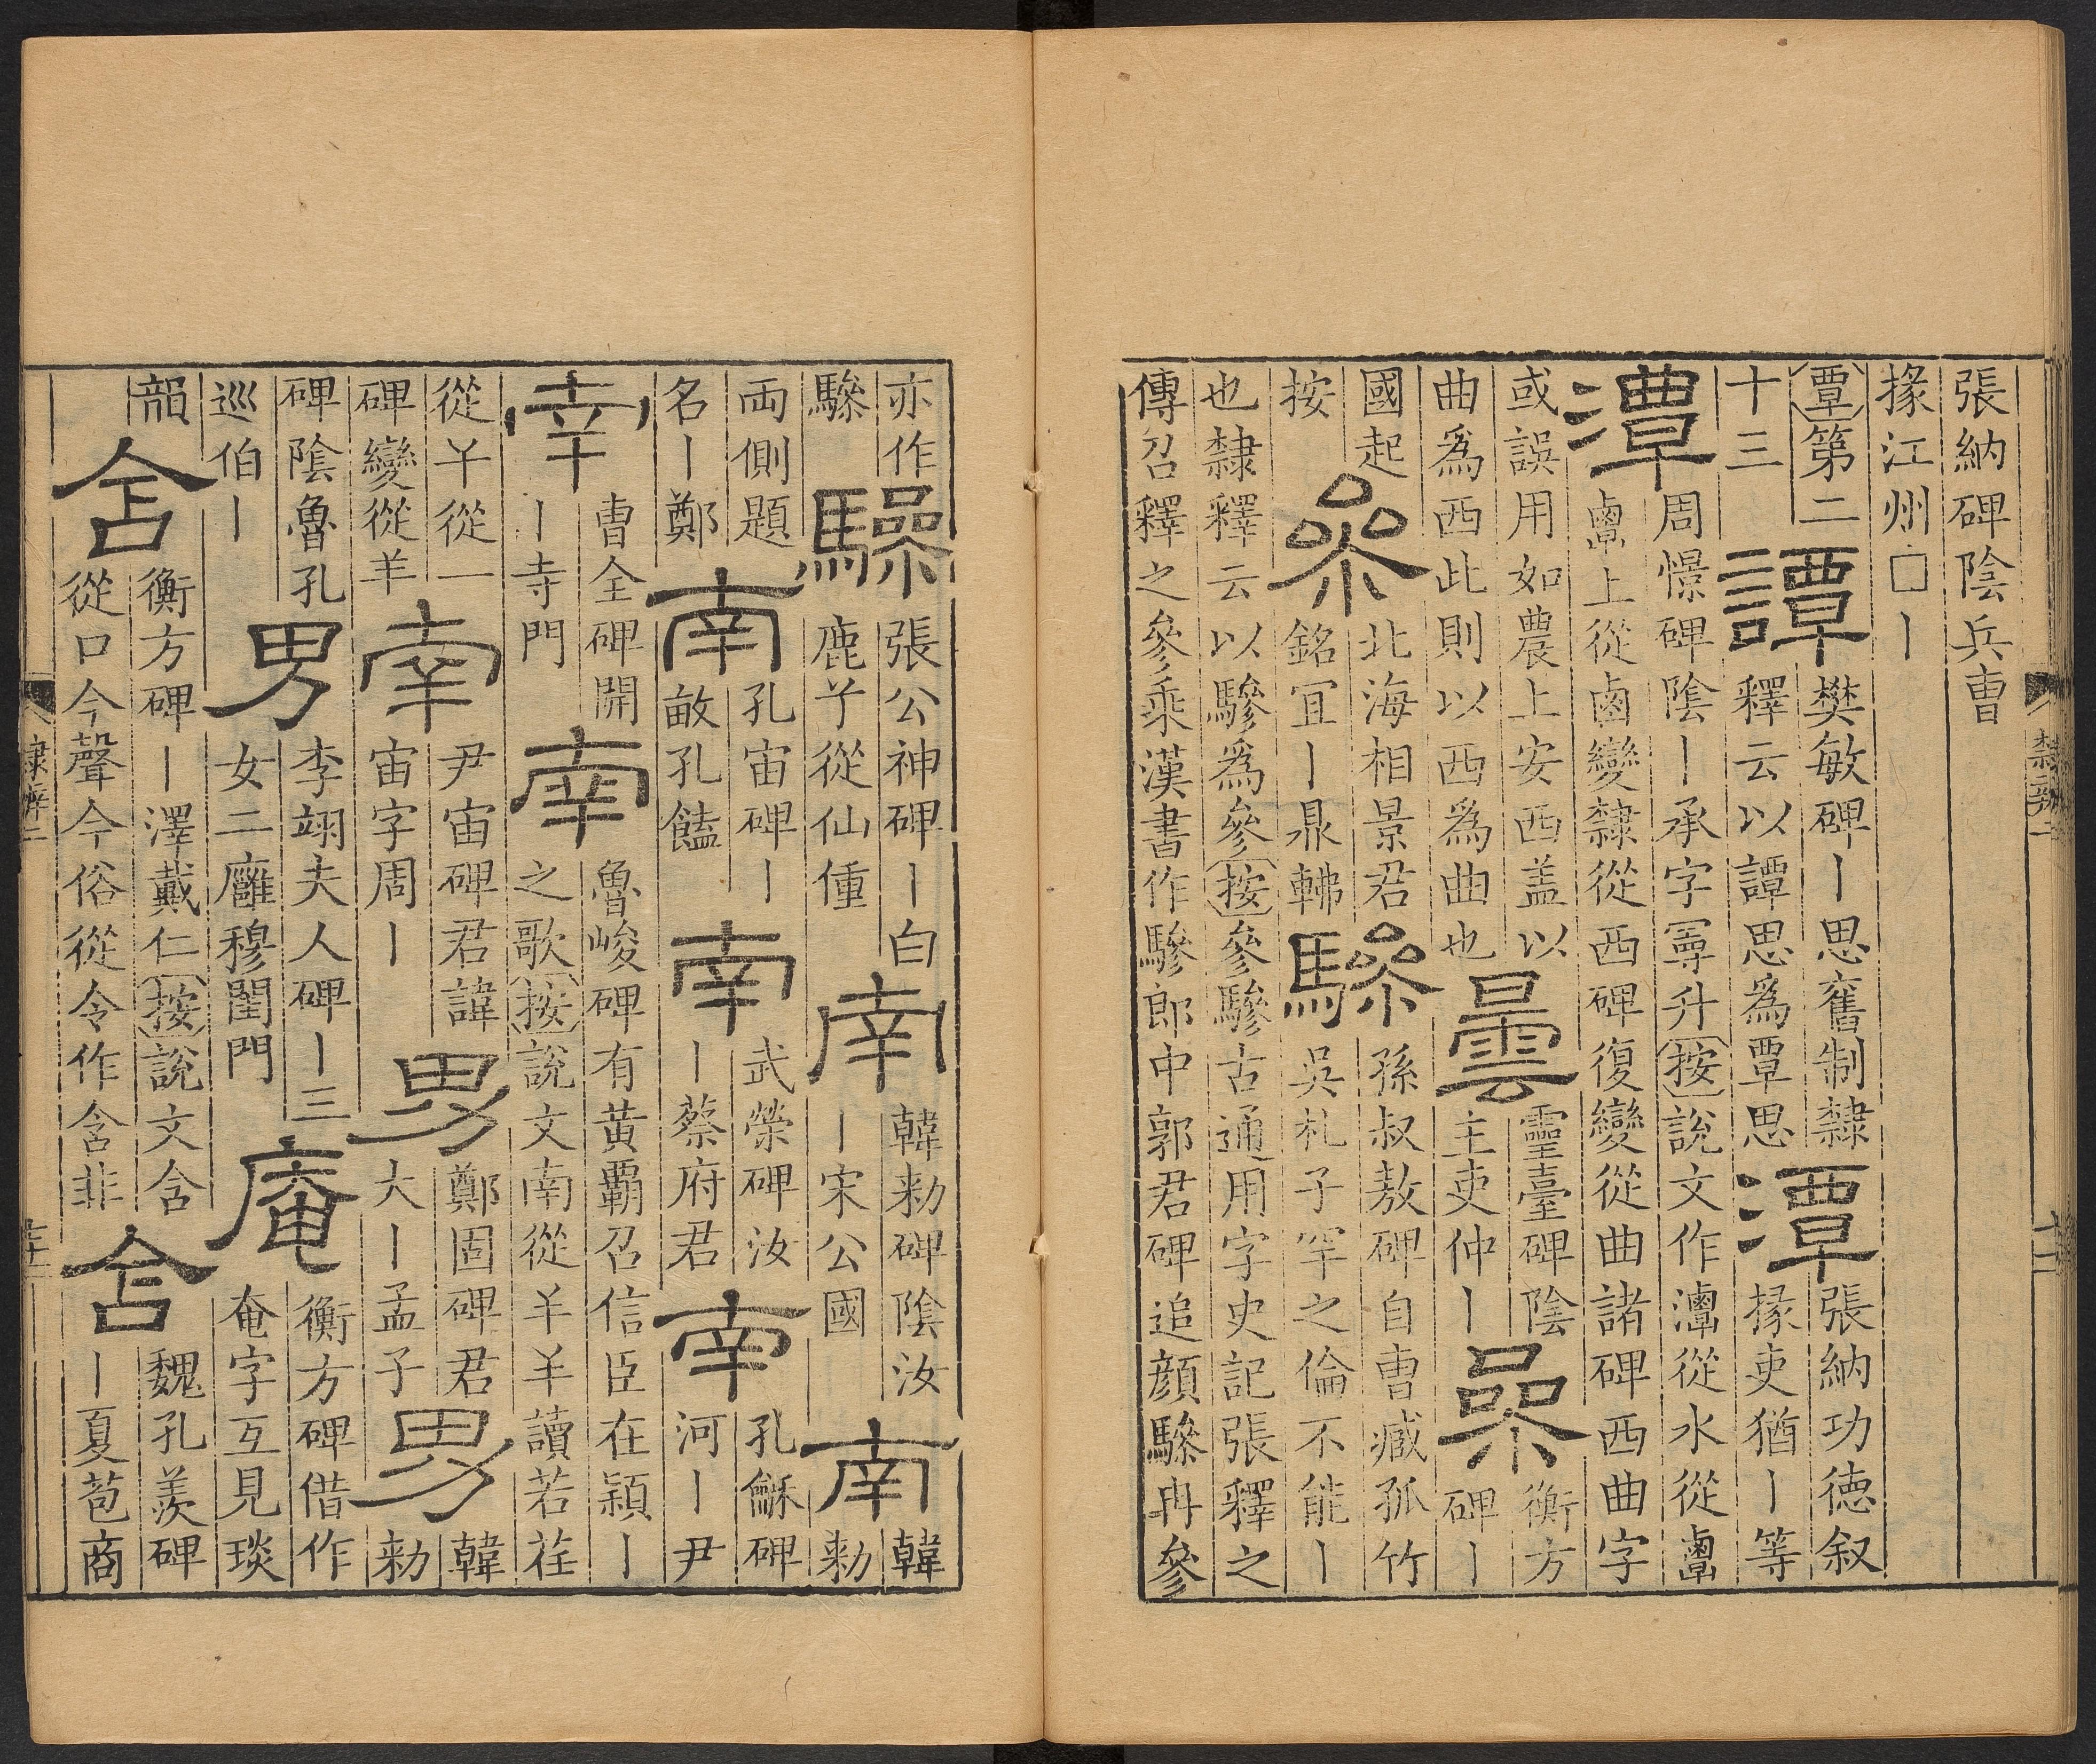 張納碑陰兵曹
掾江州□丨
覃第二
十三
譚
樊敏碑丨思舊制隸
釋云以譚思為覃思
潭
張納功德叙
掾吏猶丨等
潭
周憬碑陰丨承字㝷升按說文作潭從水從𪉷
𪉷上從鹵變隸從西碑復變從曲諸碑西曲字
或誤用如農上安西盖以
曲為西此則以西為曲也
曇
靈臺碑陰
主吏仲丨
參
衡方
碑丨
國起
按
參
北海相景君
銘宜丨鼎軵
驂
孫叔敖碑自曹臧孤竹
吳札子罕之倫不能丨
也隸釋云以驂為參按參驂古通用字史記張釋之
傳召釋之參乘漢書作驂郎中郭君碑追顏驂冉參
亦作
驂
驂
張公神碑丨白
鹿兮從仙僮
南
韓勑碑陰汝
丨宋公國
南
韓
勑
兩側題
名丨鄭
南
孔宙碑丨
畝孔饁
南
武榮碑汝
丨蔡府君
南
孔龢碑
河丨尹
南
曹全碑開
丨寺門
南
魯峻碑有黃霸召信臣在潁丨
之歌按說文南從羊羊讀若荏
從𢆉從一
碑變從羊
南
尹宙碑君諱
宙字周丨
男
鄭固碑君
大丨孟子
男
韓
勑
碑陰魯孔
巡伯丨
男
李翊夫人碑丨三
女二廱穆閨門
庵
衡方碑借作
奄字互見琰
韻
含
衡方碑丨澤戴仁按說文含
從口今聲今俗從令作含非
含
魏孔羨碑
丨夏苞商
隸辨二